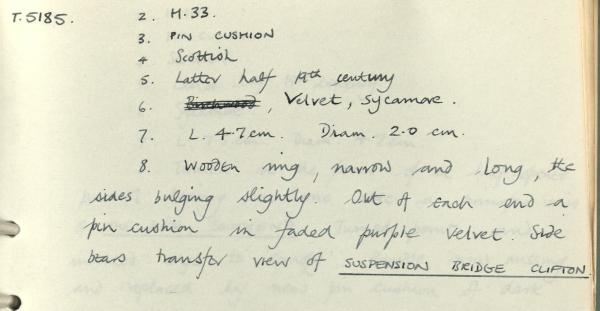 T.5185. 2. H.33.
3. PIN CUSHION
4 Scottish
5. Latter half 19th century
6. Birchwood, Velvet, Sycamore.
7. L. 4.7cm. Diam. 2.0 cm.
8. Wooden ring, narrow and long, the
sides bulging slightly Out of each end a
pin cushion in faded purple velvet. Side
bears transfer view of SUSPENSION BRIDGE CLIFTON.